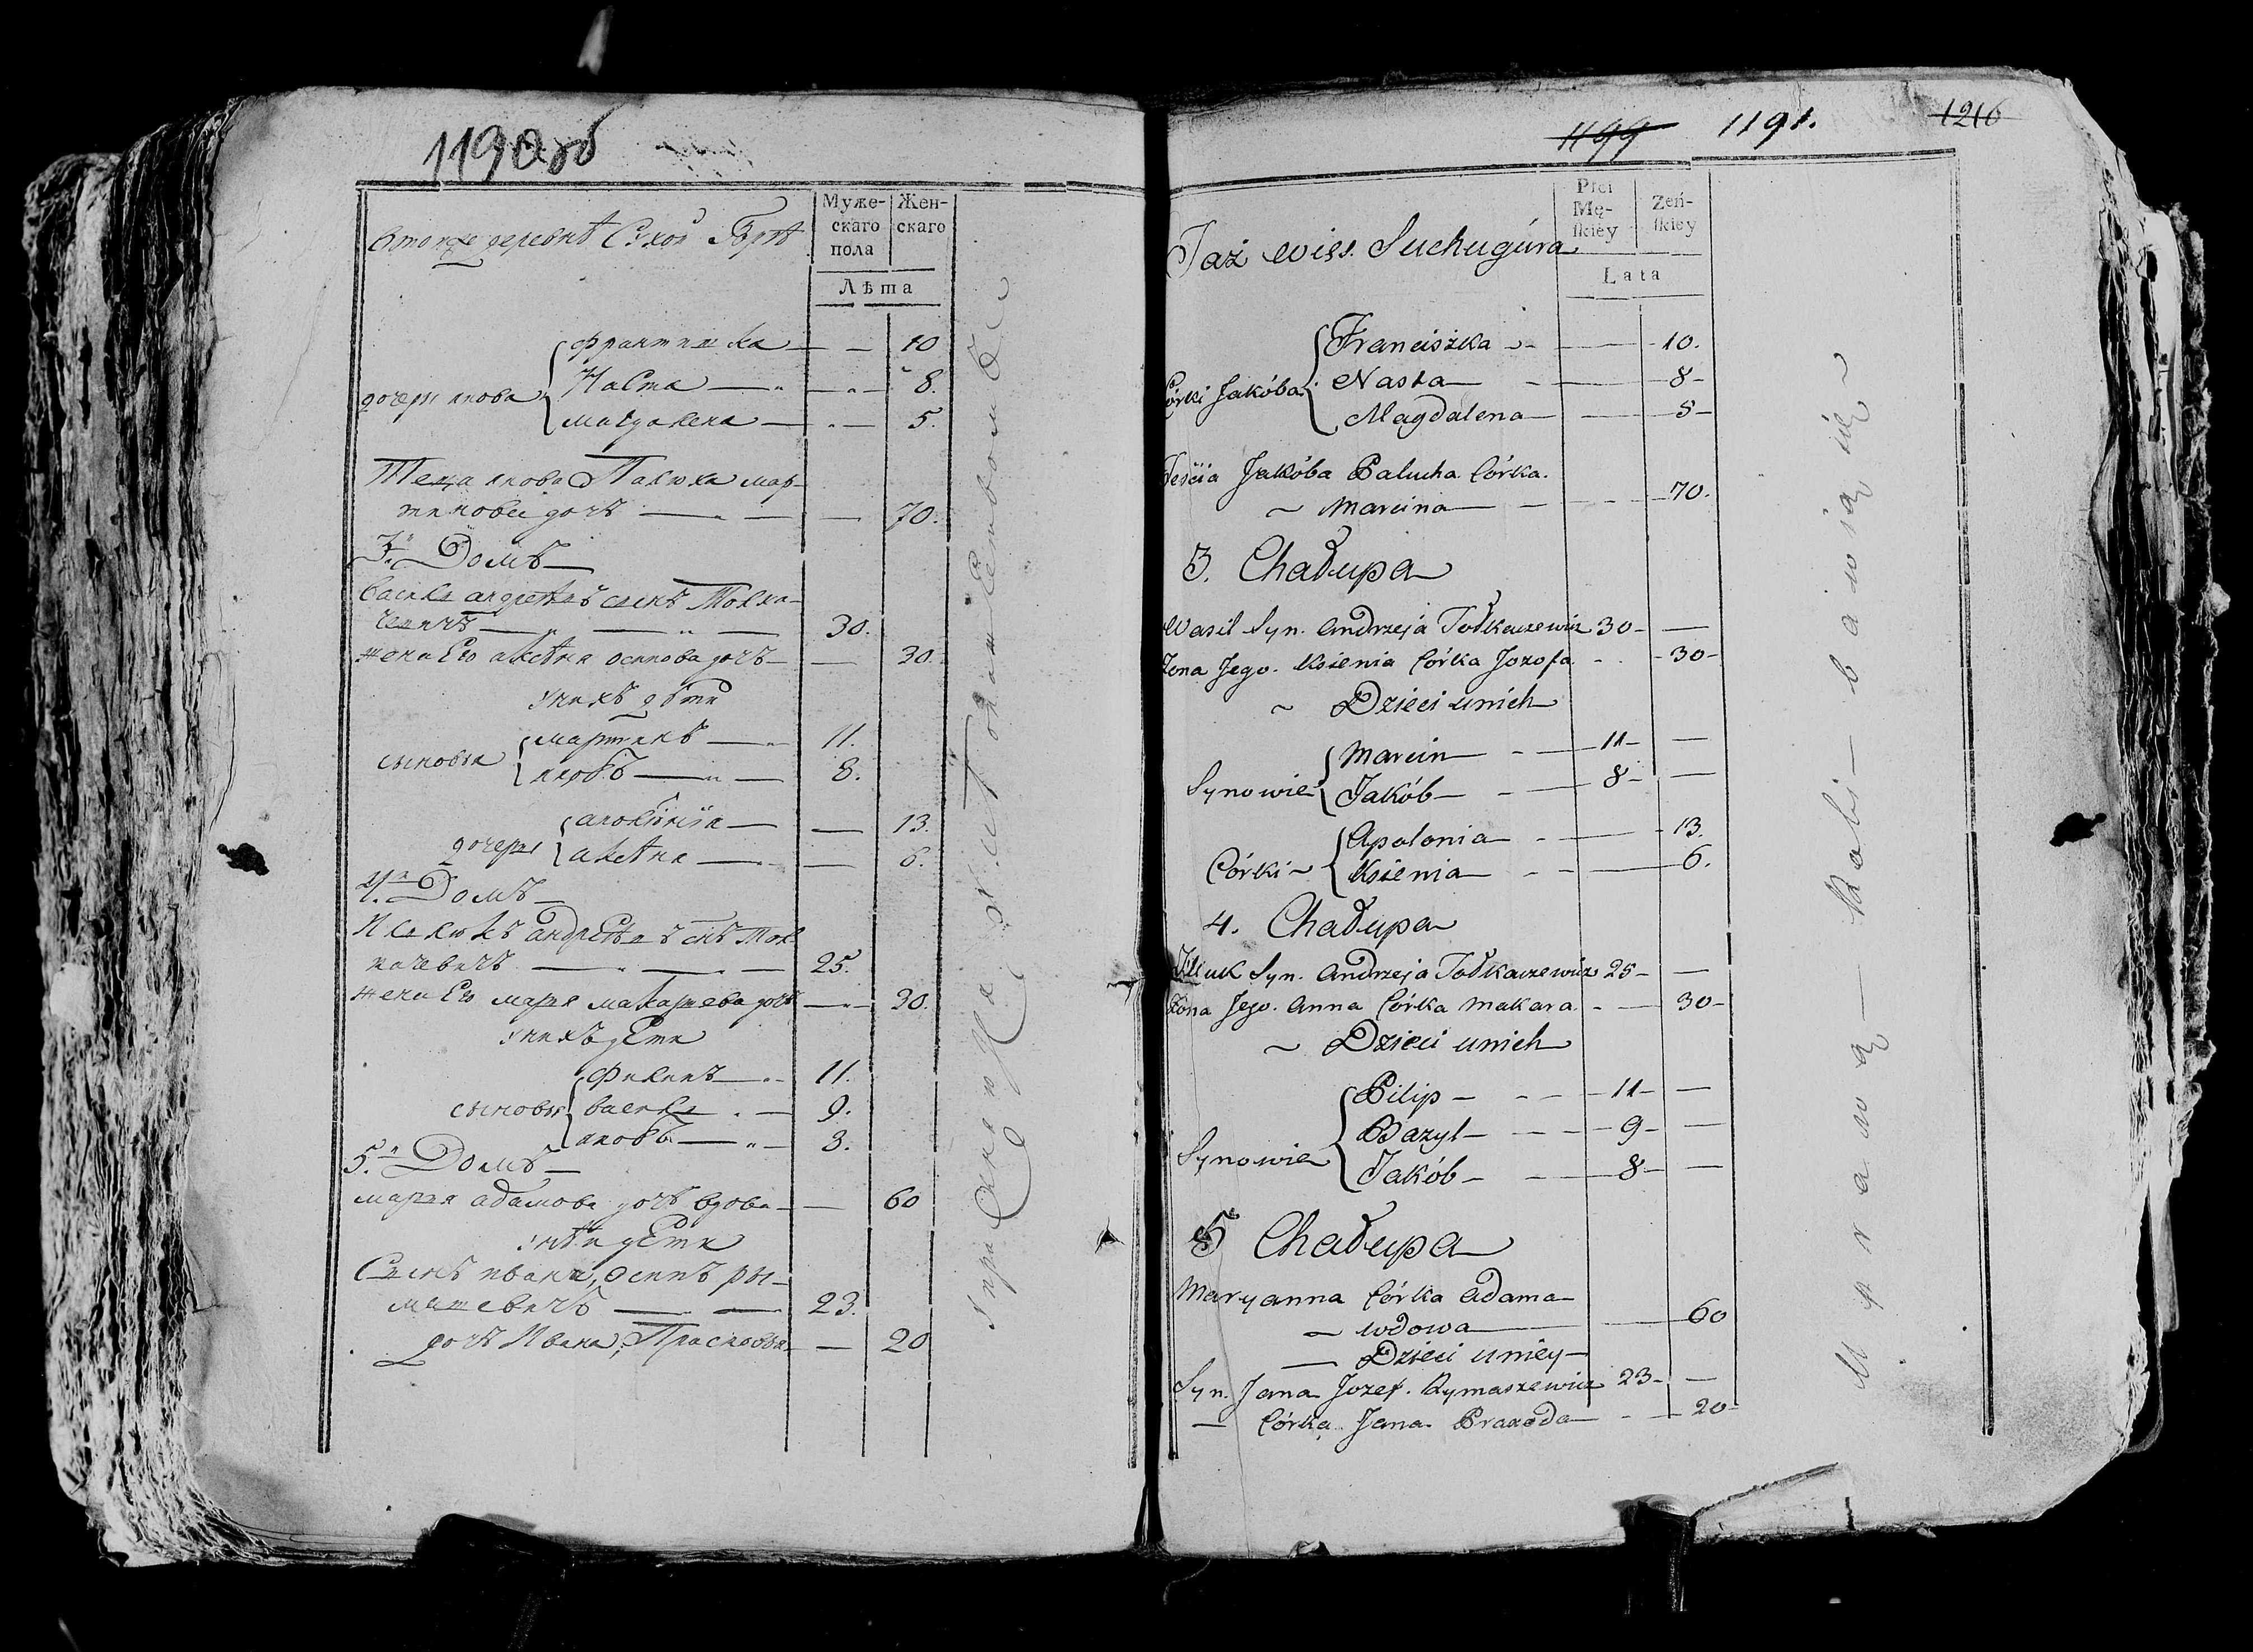 1190об
Муже-
скаго
пола
Жен-
скаго
Лѣта
втойже деревнѣ Сухой Горѣ
дочери якова
францишка — — 10
Наста — — 8.
магдалена — — 5.
Теща якова Палюха мар-
тинова дочь — — 70.
3.й Домъ
васила андреевъ сынъ Толка-
чевичъ — — 30.
жена Его аксѣня осипова дочь — — 30.
у нихъ дѣти
сыновья
мартинъ — 11.
яковъ — 8.
дочери
аполонія — — 13.
аксѣня — — 6.
4.й Домъ
андреевъ снъ Тол-
качевичъ — — 25.
жена Его маря макарева дочь — 30.
у нихъ дети
сыновья
филипъ — 11.
василь — 9.
яковъ — 8.
5.й Домъ
маря адамова дочь вдова — — 60
у нѣй дети
Сынъ ивана, осипъ ры-
машевичъ — — 23.
дочь Ивана, Прасковья — 20
1199 1191. 1216
Płci
Mę-
skiéy
Żeń-
skiéy
Lata
Taż wieś. Suchugúra
Córki Jakóba
Franciszka — 10.
Nasta — 8 –
Magdalena — 5 –
Teściá Jakóba Palucha Córka.
~ Marcina — 70.
3. Chałupa
Wasil Syn. Andrzeja Tołkaczewicz 30 – —
Żona Jego. Ksienia Córka Jozefa. - - 30 –
~ Dzieci unich
Synowie
Marcin — 11 – —
Jakób — 8 – —
Córki ~
Apolonia — 13.
Ksienia — 6.
4. Chałupa
Iluk Syn. Andrzeja Tołkaczewicz 25 – —
Żona Jego. Anna Córka Makara. - — 30 –
~ Dzieci unich
Synowie
Pilip — 11 – —
Bazyl — 9 – —
Jakób — 8 – —
5 Chałupa
Maryanna Córka Adama —
~ wdowa — 60
— Dzieci uniéy —
Syn. Jana Jozef. Rymaszewicz 23 – —
— Córka Jana. Praxeda — 20 –